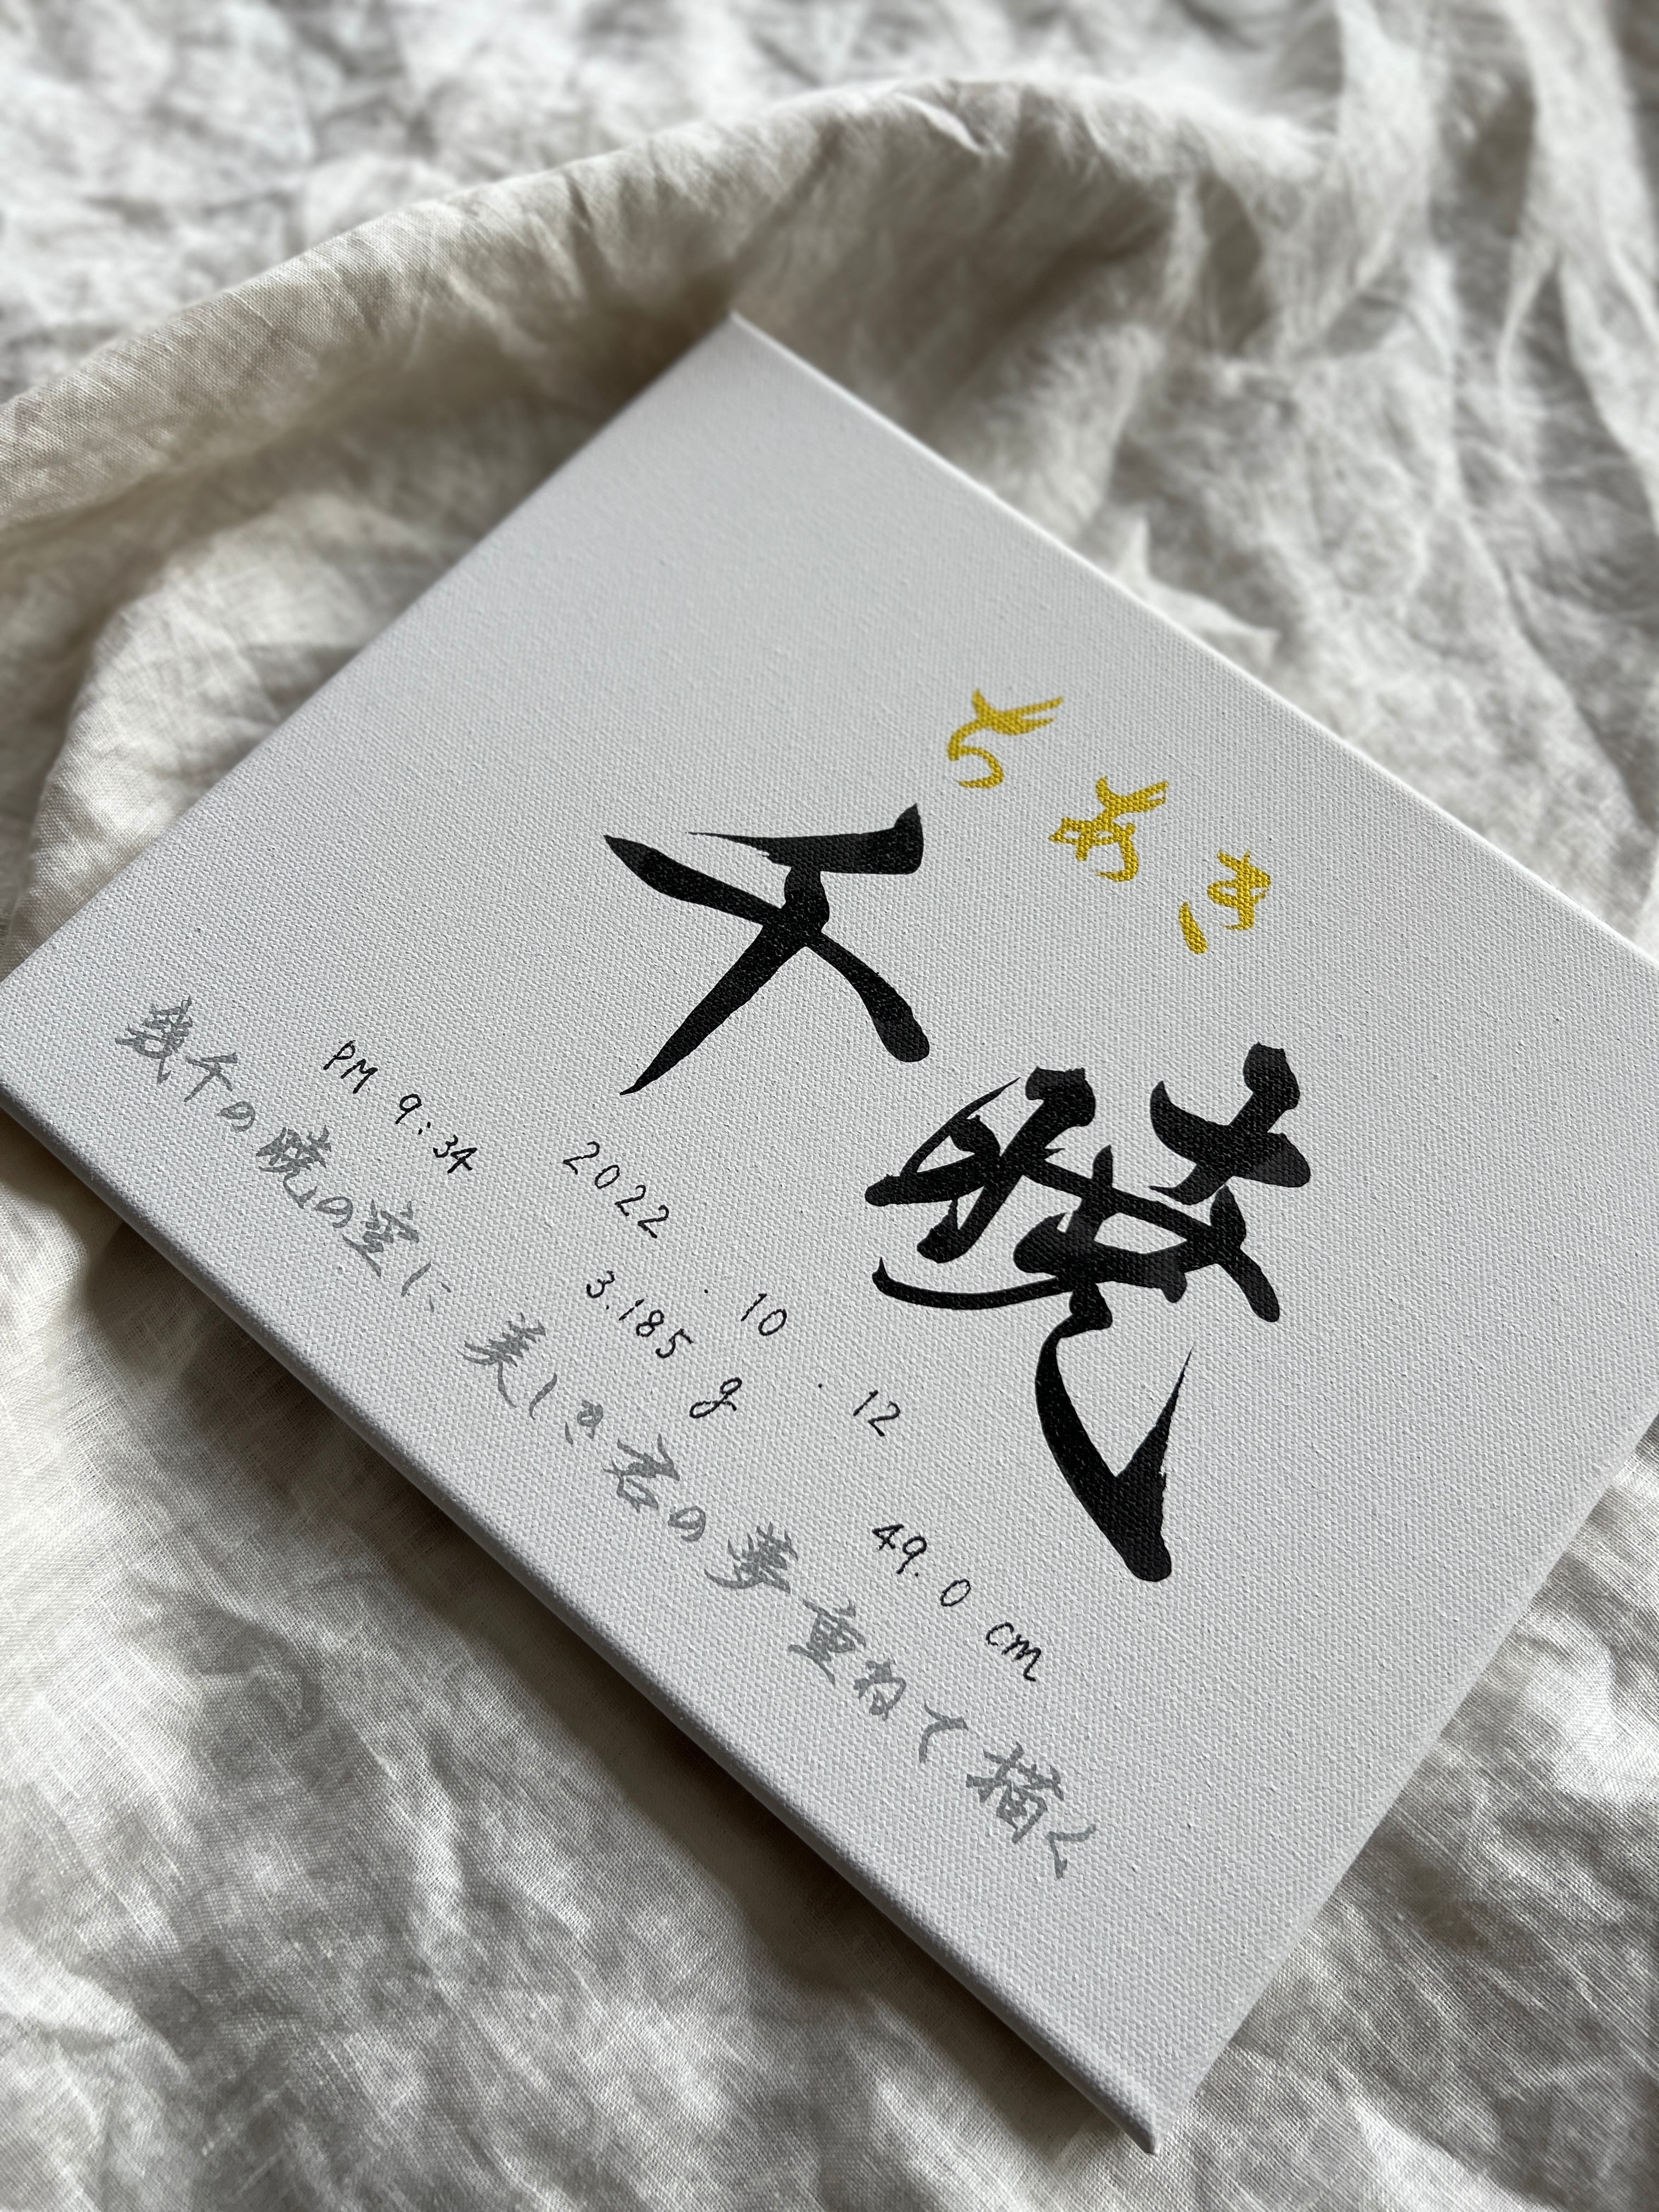 ちあき
千暁
2022 . 10 . 12
PM 9:34 3.185 g 49.0 cm
幾千の暁の空に 美しき君の夢 重ねて描く